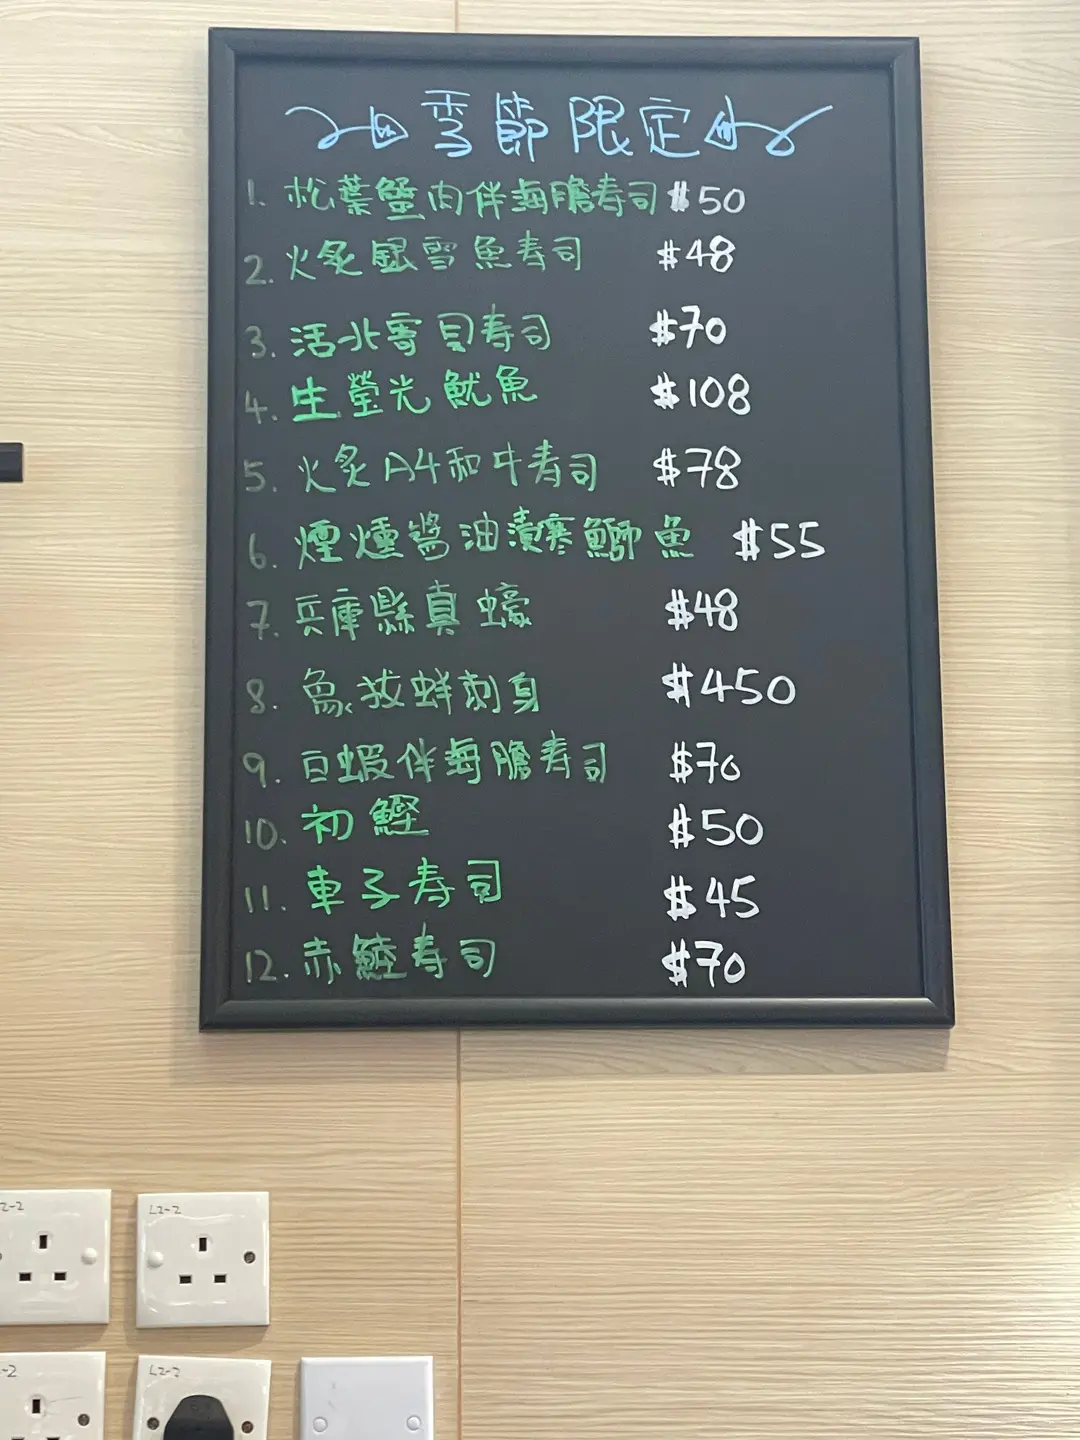 季節限定
1. 松葉蟹肉伴海膽寿司 $50
2. 火炙銀雪魚寿司 $48
3. 活北寄貝寿司 $70
4. 生螢光魷魚 $108
5. 火炙A4和牛寿司 $78
6. 煙燻醬油漬寒鰤魚 $55
7. 兵庫縣真蠔 $48
8. 象拔蚌刺身 $450
9. 白蝦伴海膽寿司 $70
10. 初鰹 $50
11. 車子寿司 $45
12. 赤鯥寿司 $70
L2-2
L2-2
L2-2